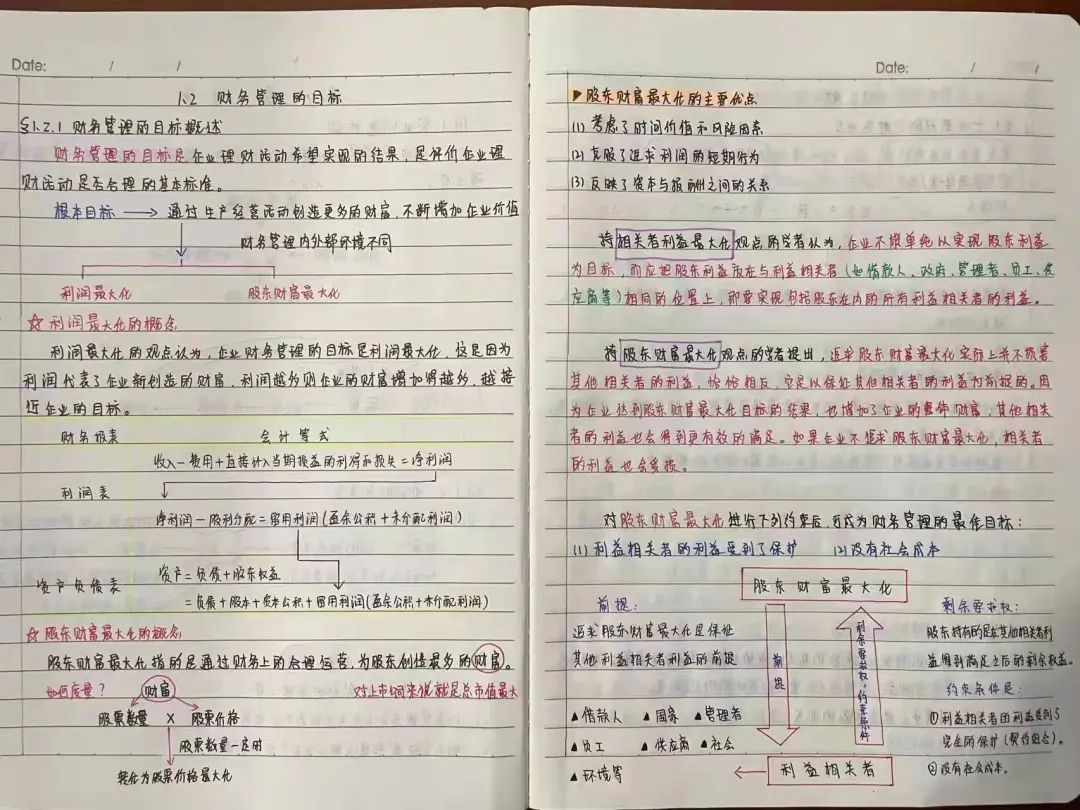 Date: / /
1.2 财务管理的目标
§1.2.1 财务管理的目标概述
财务管理的目标是企业理财活动希望实现的结果，是评价企业理
财活动是否合理的基本标准。
根本目标 → 通过生产经营活动创造更多的财富，不断增加企业价值
财务管理内外部环境不同
利润最大化 股东财富最大化
☆ 利润最大化的概念
利润最大化的观点认为，企业财务管理的目标是利润最大化，这是因为
利润代表了企业新创造的财富，利润越多则企业的财富增加得越多，越接
近企业的目标。
财务报表 会计等式
收入－费用＋直接计入当期损益的利得和损失＝净利润
利润表
净利润－股利分配＝留用利润(盈余公积＋未分配利润)
资产＝负债＋股东权益
资产负债表
＝负债＋股本＋资本公积＋留用利润(盈余公积＋未分配利润)
☆ 股东财富最大化的概念
股东财富最大化指的是通过财务上的合理运营，为股东创造最多的财富。
如何度量？ 财富 对上市公司来说就是总市值最大
股票数量 × 股票价格
股票数量一定时
转化为股票价格最大化
Date: / /
▶ 股东财富最大化的主要优点
(1) 考虑了时间价值和风险因素
(2) 克服了追求利润的短期行为
(3) 反映了资本与报酬之间的关系
持相关者利益最大化观点的学者认为，企业不能单纯以实现股东利益
为目标，而应把股东利益放在与利益相关者(如借款人、政府、管理者、员工、供
应商等)相同的位置上，即要实现包括股东在内的所有利益相关者的利益。
持股东财富最大化观点的学者提出，追求股东财富最大化实际上并不损害
其他相关者的利益，恰恰相反，它是以保证其他相关者的利益为前提的。因
为企业达到股东财富最大化目标的结果，也增加了企业的整体财富，其他相关
者的利益也会得到更有效的满足。如果企业不追求股东财富最大化，相关者
的利益也会受损。
对股东财富最大化进行下列约束后，可成为财务管理的最佳目标：
(1) 利益相关者的利益受到了保护 (2) 没有社会成本
股东财富最大化
前提：
追求股东财富最大化是保证
其他利益相关者利益的前提
▲借款人 ▲国家 ▲管理者
▲员工 ▲供应商 ▲社会
▲环境等
前提
剩余要求权，约束条件
剩余要求权：
股东持有的是在其他相关者利
益得到满足之后的剩余权益。
约束条件是：
①利益相关者的利益受到了
完全的保护(契约组合)。
②没有社会成本。
利益相关者